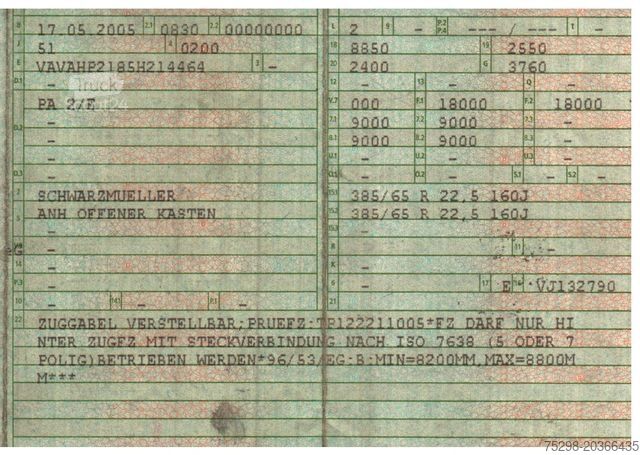 B 17.05.2005 2.1 0830 2.2 00000000
J 51 4 0200
E VAVAHP2185H214464 3 -
D.1 -
Truck
PA 2/E
D.2 -
-
D.3 -
2 SCHWARZMUELLER
5 ANH OFFENER KASTEN
-
V.9 -
14 -
P.3 -
10 - 14.1 - P.1 -
22 ZUGGABEL VERSTELLBAR;PRUEFZ:TP122211005*FZ DARF NUR HI
NTER ZUGFZ MIT STECKVERBINDUNG NACH ISO 7638 (5 ODER 7
POLIG)BETRIEBEN WERDEN*96/53/EG:B:MIN=8200MM,MAX=8800M
M***
L 2 9 - P.2 P.4 --- / --- T -
18 8850 19 2550
20 2400 G 3760
12 - 13 - Q -
V.7 000 F.1 18000 F.2 18000
7.1 9000 7.2 9000 7.3 -
8.1 9000 8.2 9000 8.3 -
U.1 - U.2 - U.3 -
O.1 - O.2 - S.1 - S.2 -
15.1 385/65 R 22,5 160J
15.2 385/65 R 22,5 160J
15.3 -
R - 11 -
K -
6 - 17 E 16 VJ132790
21 -
75298-20366435